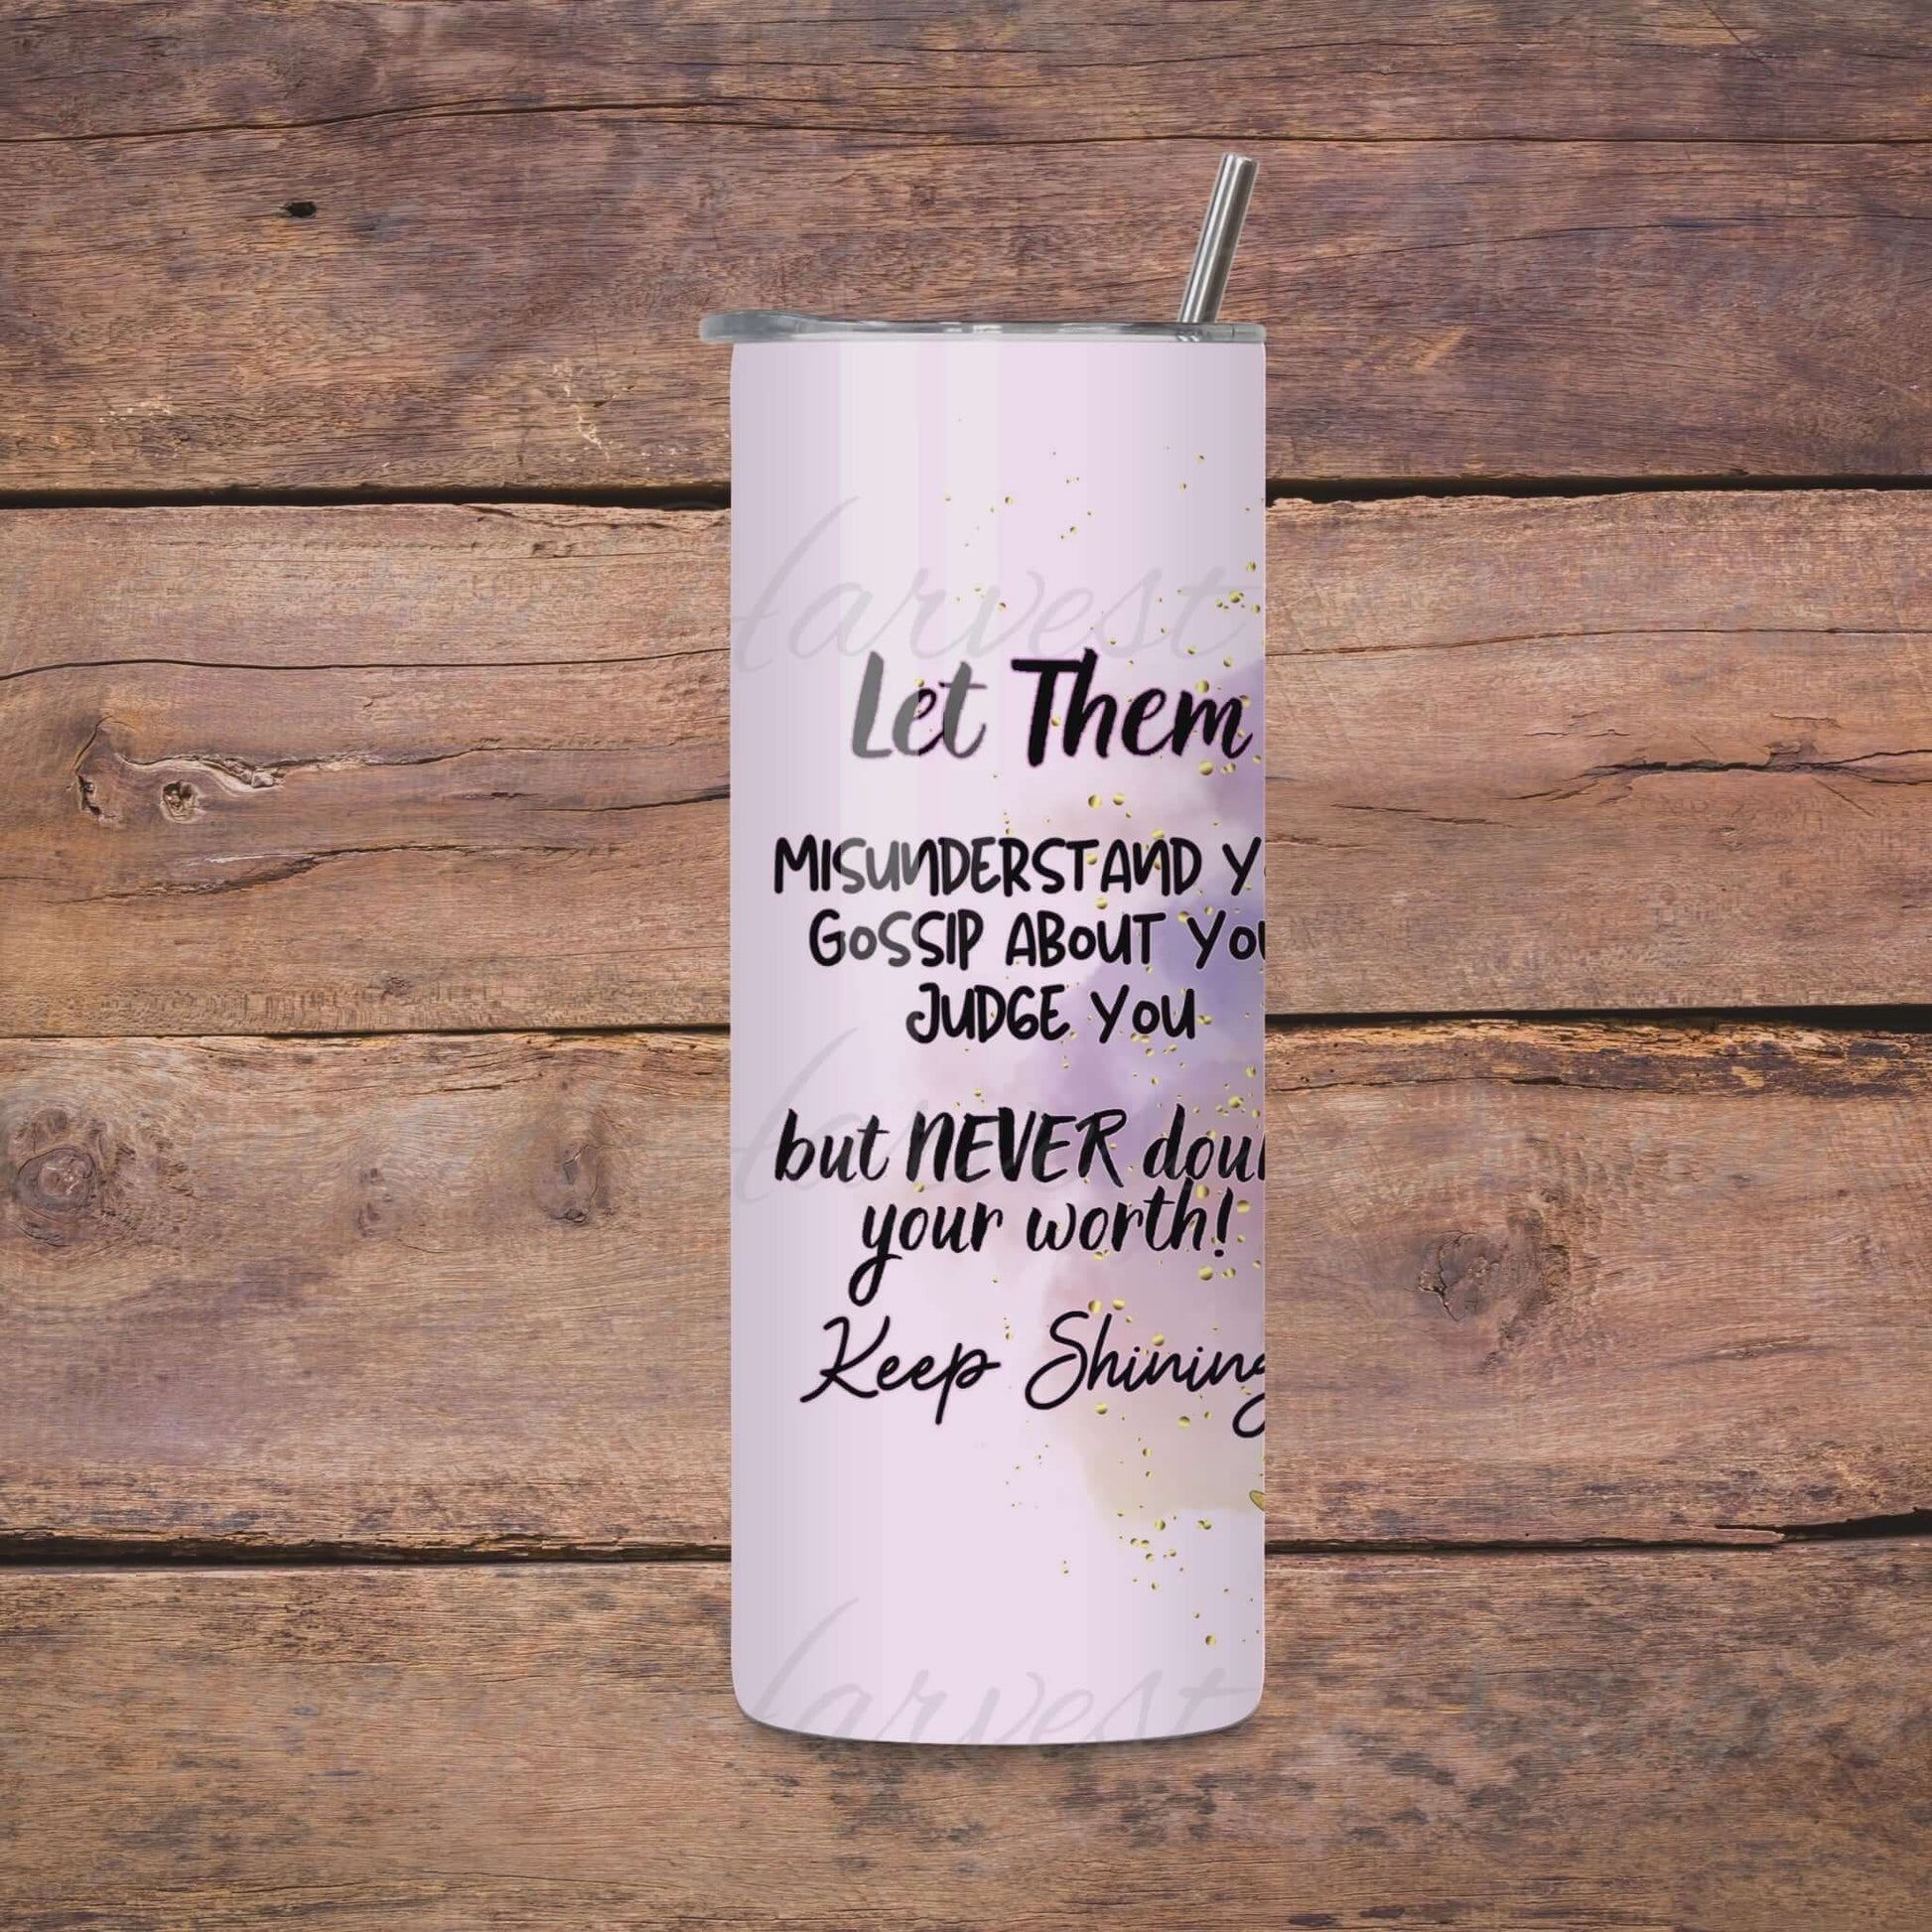 arvest
Let Them
MISUNDERSTAND Y
GOSSIP ABOUT YOU
JUDGE YOU
but NEVER
your worth!
Keep Shining
arvest